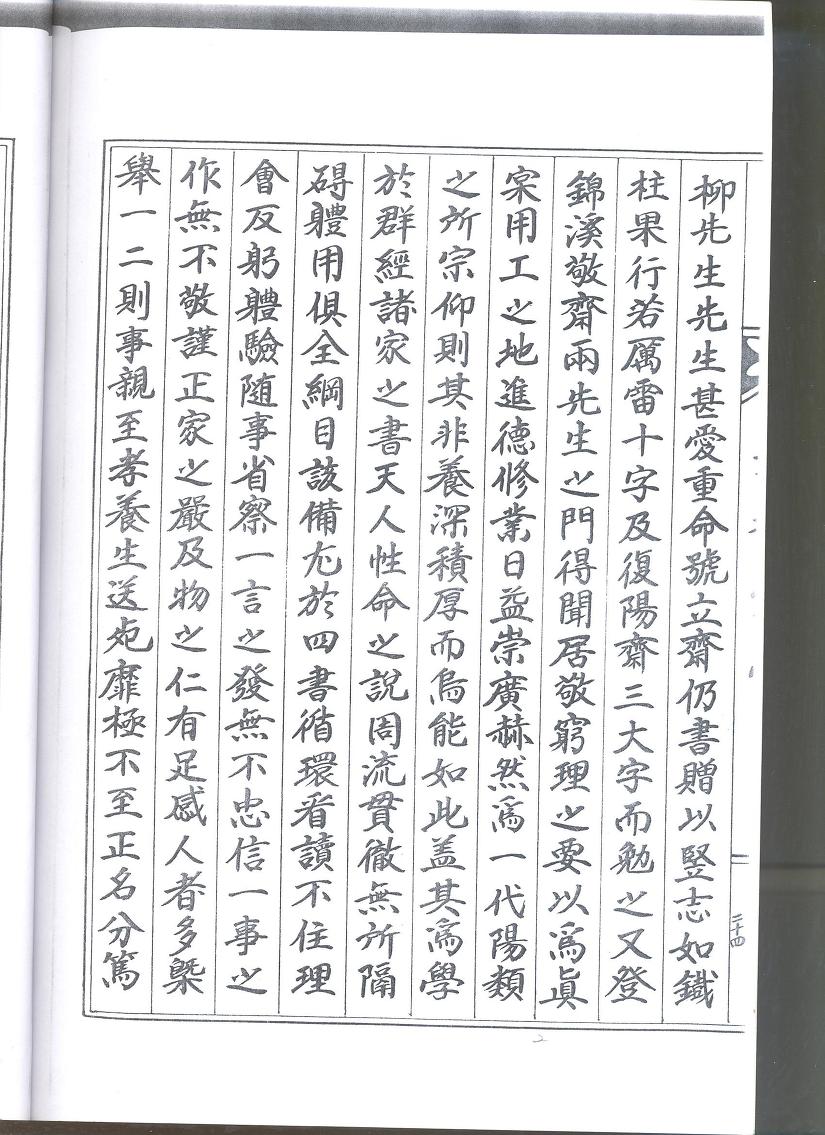 柳先生先生甚愛重命號立齋仍書贈以竪志如鐵
柱果行若厲雷十字及復陽齋三大字而勉之又登
錦溪敬齋兩先生之門得聞居敬窮理之要以爲眞
宲用工之地進德修業日益崇廣赫然爲一代陽類
之所宗仰則其非養深積厚而烏能如此盖其爲學
於群經諸家之書天人性命之說周流貫徹無所隔
碍軆用俱全綱目該備尤於四書循環看讀不住理
會反躬軆驗随事省察一言之發無不忠信一事之
作無不敬謹正家之嚴及物之仁有足感人者多槩
舉一二則事親至孝養生送死靡極不至正名分篤
二十四